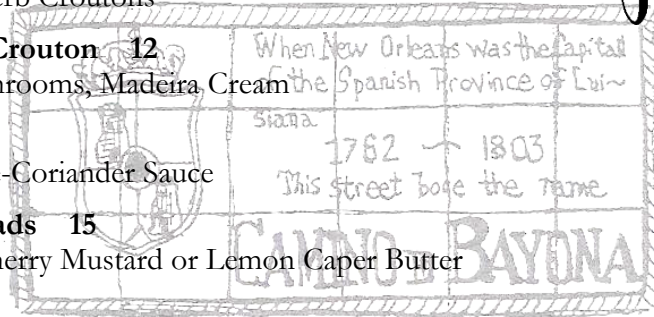 Croutons
Crouton 12
hrooms, Madeira Cream
-Coriander Sauce
ads 15
herry Mustard or Lemon Caper Butter
When New Orleans was the Capital
of the Spanish Province of Lui~
siana
1762 — 1803
This street bore the name
CAMINO DE BAYONA